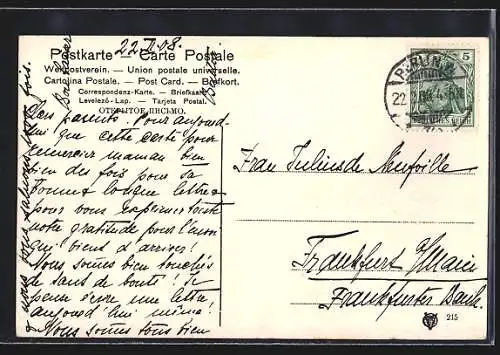 22.II.08.
Postkarte — Carte Postale
Weltpostverein. — Union postale universelle.
Cartolina Postale. — Post Card. — Brefkort.
Correspondenz-Karte. — Briefkaart.
Levelező-Lap. — Tarjeta Postal.
ОТКРЫТОЕ ПИСЬМО.
Berlin
Chers parents! Pour aujourd-
hui que cette carte pour
remercier maman bien
bien des fois pour sa
bonne & longue lettre &
pour vous exprimer toute
notre gratitude pour l'envoi
qui vient d'arriver!
Nous sommes bien touchés
de tant de bonté! Je
pense écrire une lettre
aujourd'hui même!
Nous sommes tous bien
& nous vous fois.
BERLIN
22
5
Frau Julius de Neufville
Frankfurt a/Main
Frankfurter Bank.
215